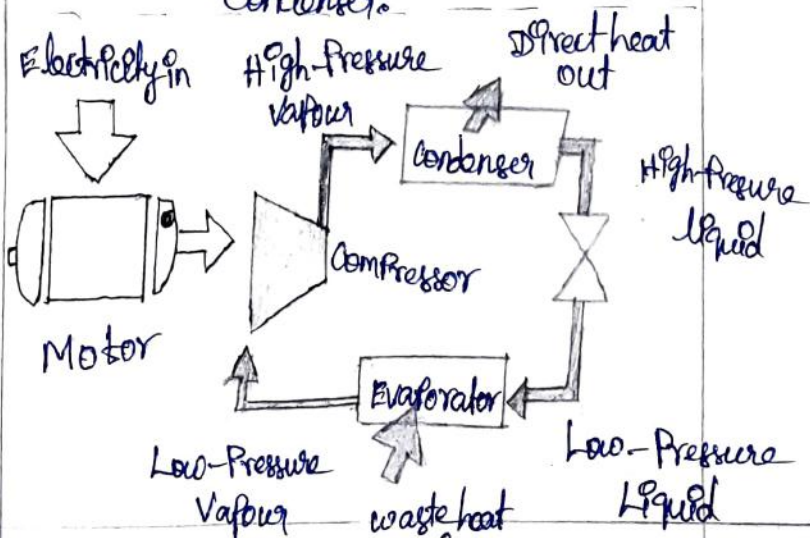 Condenser.
Electricity in
High-Pressure
Vapour
Direct heat
out
Condenser
High-Presure
liquid
Compressor
Motor
Evaporator
Low-Pressure
Vapour
waste heat
Low-Pressure
Liquid